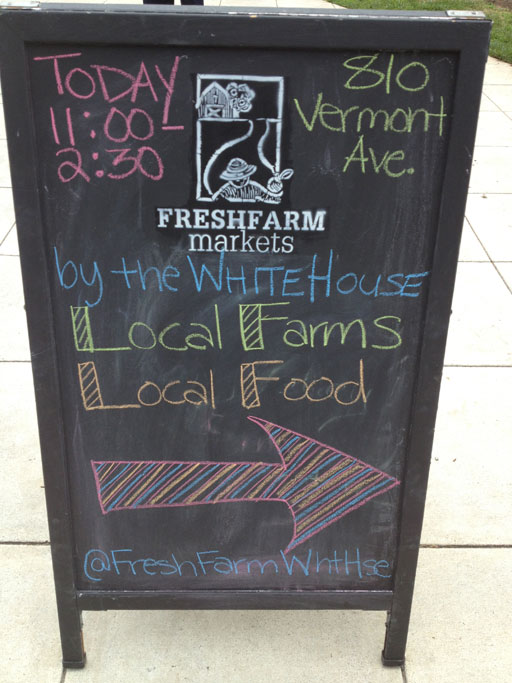 TODAY
11:00-
2:30
810
Vermont
Ave.
FRESHFARM
markets
by the WHITEHOUSE
Local Farms
Local Food
@FreshFarmWhtHse